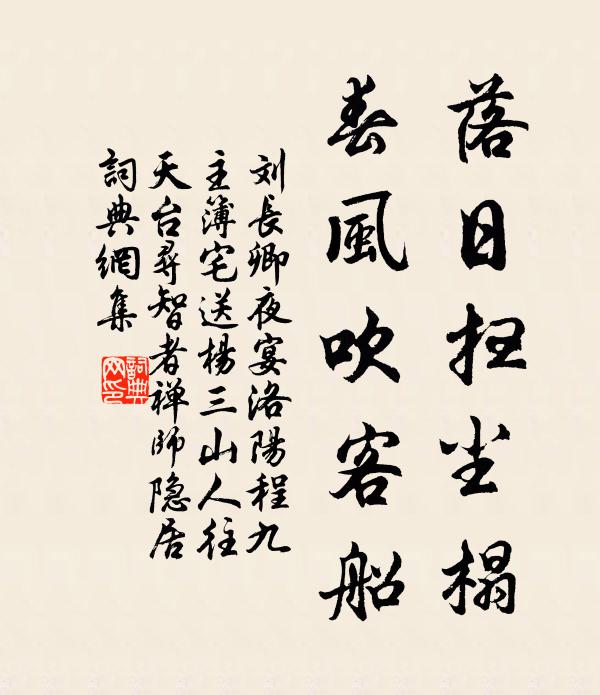 落日扫尘榻
春風吹客船
刘長卿夜宴洛陽程九
主簿宅送楊三山人往
天台尋智者禅師隐居
詞典網集
詞典網印